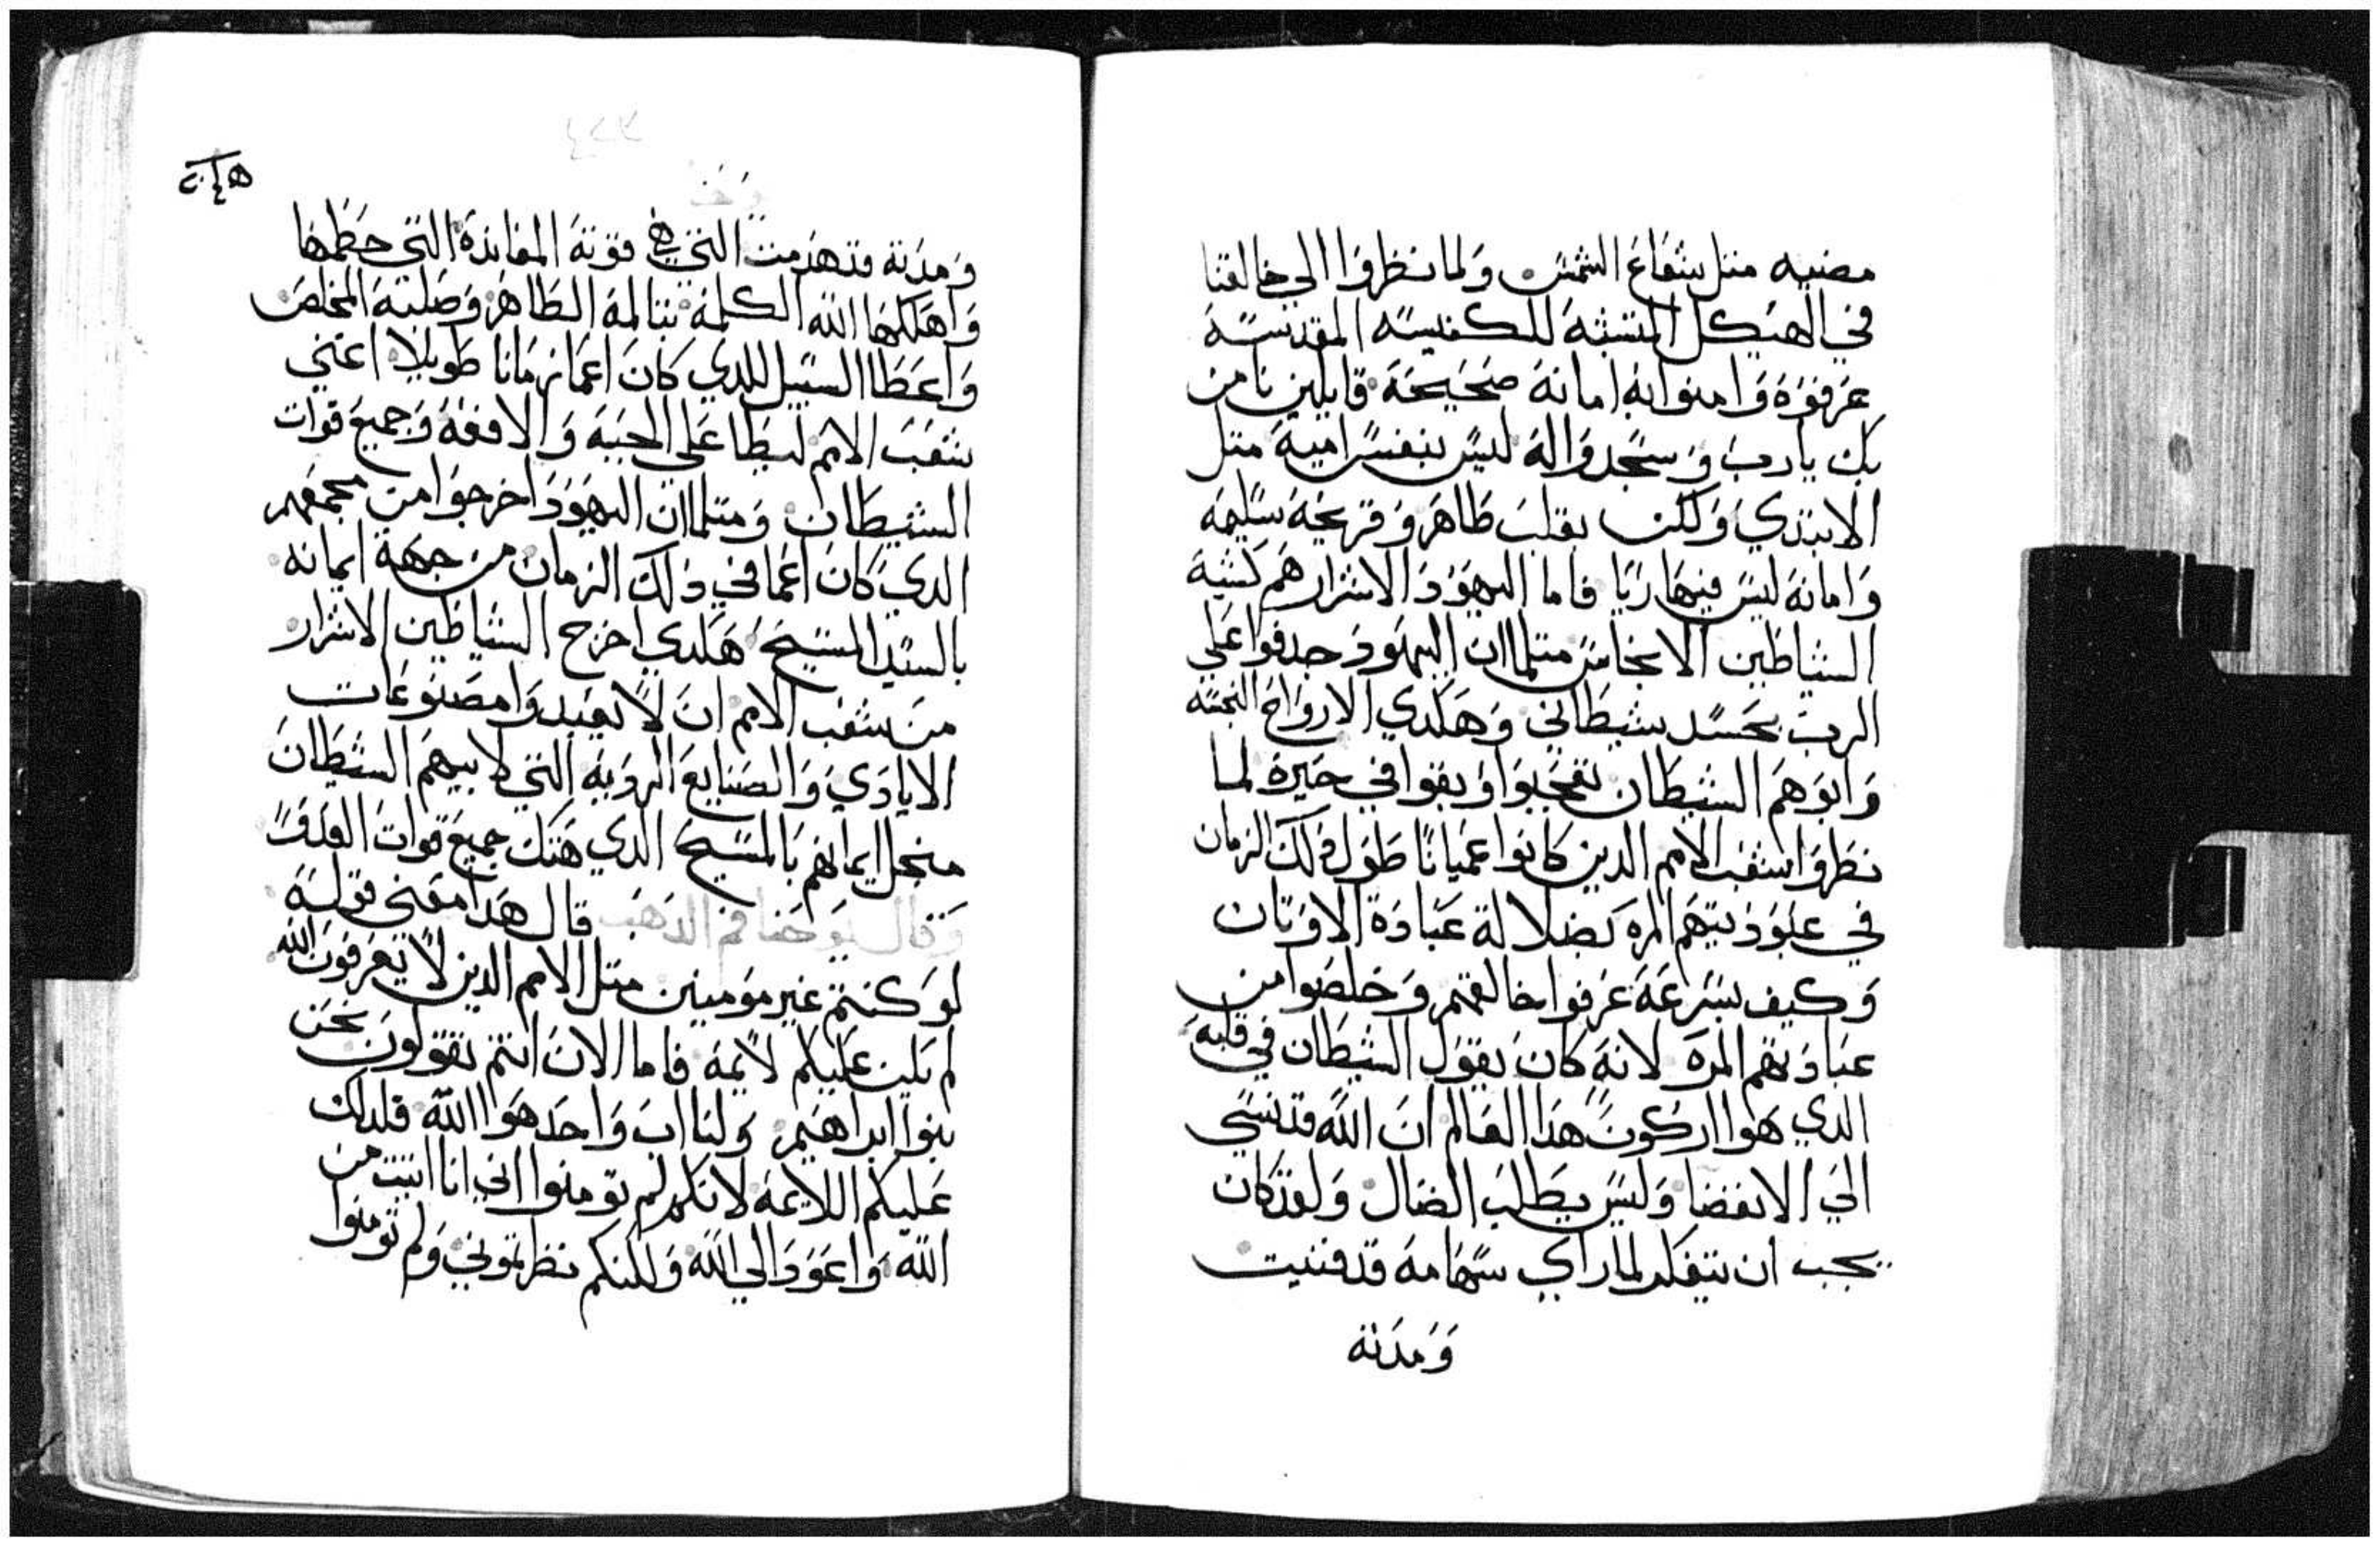 مضيه متل شعاع الشمس ولما نظروا الي خالقنا
في الهيكل المتشبه للكنيسه المقدسة
عرفوه وامنوا به امانه صحيحة قايلين نامن
بك يارب وسجدوا له ليس بنفس امية متل
الابتدي ولكن بقلب طاهر وقريحه سليمه
وامانه ليس فيها ريا فاما اليهود الاشرار هم كشبه
الشياطين الانجاس متلما ان اليهود جدفوا علي
الرب بحسد شيطاني وهكدي الارواح النجسه
وابوهم الشيطان تعجبوا وبقوا في حيرة لما
نظروا شعب الامم الدين كانوا عميانا طول دلك الزمان
في عبوديتهم المره بضلالة عبادة الاوتان
وكيف بسرعة عرفوا خالقهم وخلصوا من
عبادتهم المره لانه كان يقول الشيطان في قلبه
الدي هوا اركون هدا العالم ان الله قد نسي
الي الانقضا وليس يطلب الضال ولقد كان
يجب ان يتفكر لما راي سهامه قد فنيت
ومدنه
ومدنة قد هدمت التي هي قوته المعاندة التي حطمها
واهلكها الله الكلمة بتالمه الطاهر وصلبه المخلص
واعطا السبيل للدي كان اعما زمانا طويلا اعني
شعب الامم ليطا علي الحيه والافعه وجميع قوات
الشيطان ومتلما ان اليهود اخرجوا من مجمعهم
الدي كان اعما في دلك الزمان من جهة ايمانه
بالسيد المسيح هكدي اخرج الشياطين الاشرار
من شعب الامم ان لا يعبدوا مصنوعات
الايادي والصنايع الرديه التي لابيهم الشيطان
منجل ايمانهم بالمسيح الدي هتك جميع قوات العدو
وقال يوحنا فم الدهب قال هدا معني قوله
لو كنتم غير مومنين متل الامم الدين لا يعرفون الله
لم يكن عليكم لايمه فاما الان انتم تقولون نحن
بنوا ابراهيم ولنا اب واحد هوا الله فلدلك
عليكم اللايمه لانكم لم تومنوا اني انا اتيت من
الله واعود الي الله ولكنكم نظرتموني ولم تومنوا